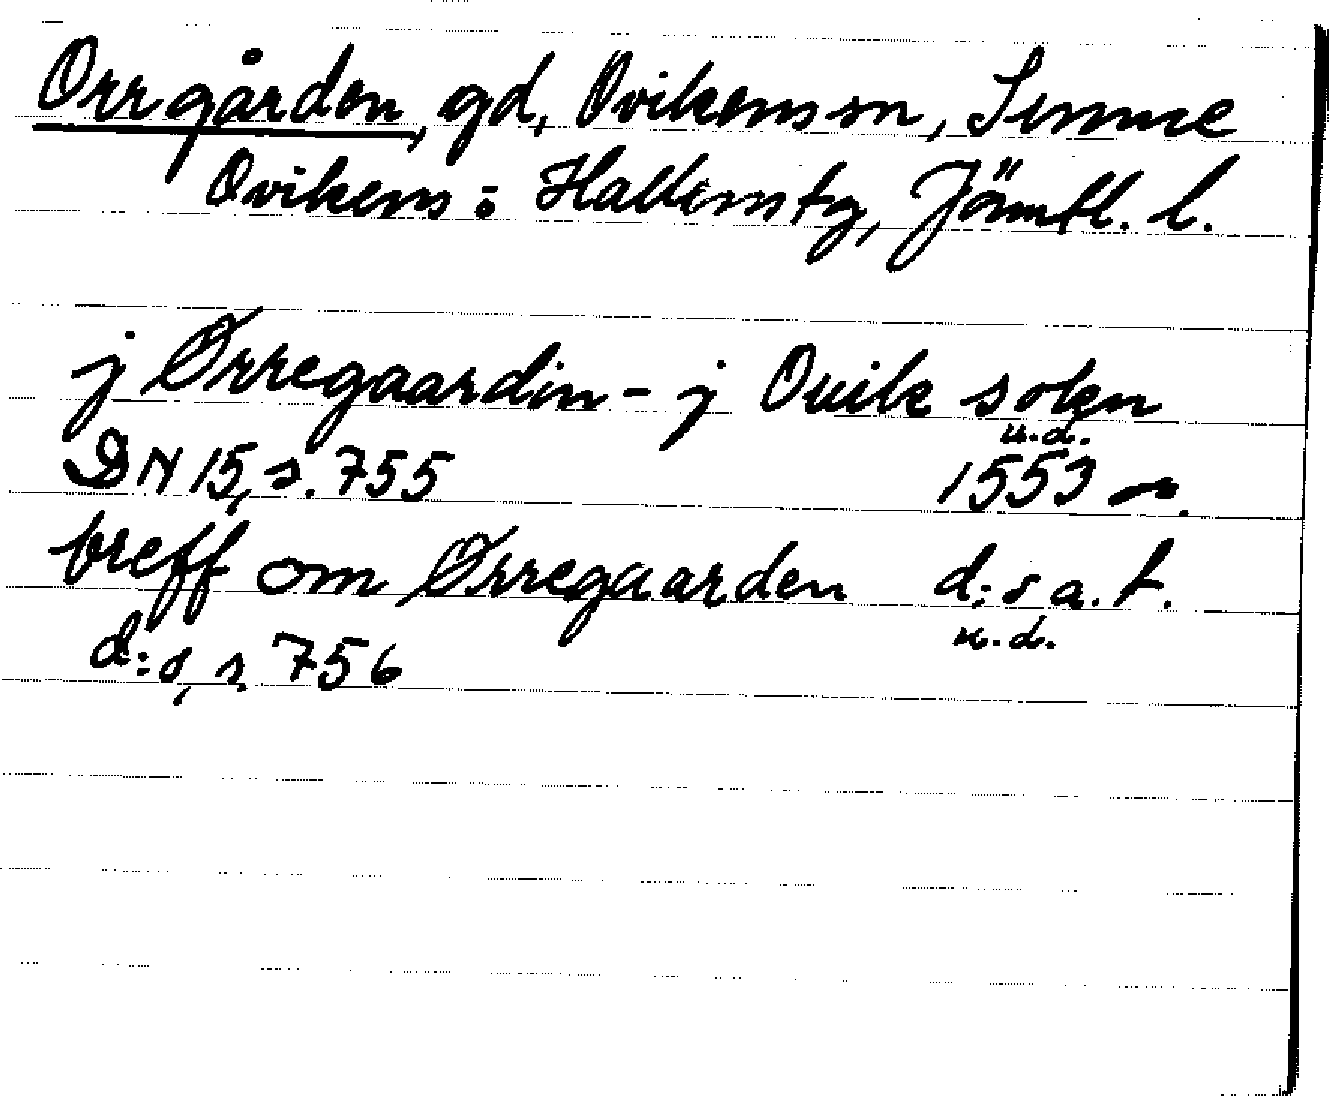 Orrgården, gd, Ovikens sn, Sunne
Ovikens o Hallens tg, Jämtl. l.
j Ørregaardin - j Ouik sokn
u.d.
DN 15, s. 755 1553
breff om Ørregaarden d:s a. t.
u.d.
d:o, s. 756